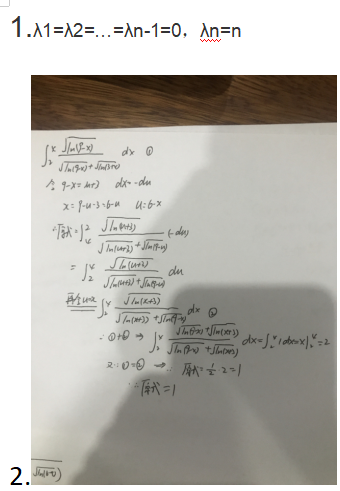 1.λ1=λ2=…=λn-1=0，λn=n
∫₂⁴ √ln(9-x) / (√ln(9-x) + √ln(3+x)) dx ①
令 9-x=u+3 dx=-du
x=9-u-3=6-u u=6-x
∴原式=∫₄² √ln(u+3) / (√ln(u+3) + √ln(9-u)) (-du)
=∫₂⁴ √ln(u+3) / (√ln(u+3) + √ln(9-u)) du
再令u=x ∫₂⁴ √ln(x+3) / (√ln(x+3) + √ln(9-x)) dx ②
∴ ①+② ⇒ ∫₂⁴ (√ln(9-x) + √ln(x+3)) / (√ln(9-x) + √ln(x+3)) dx=∫₂⁴ 1dx=x|₂⁴=2
又∵①=② ∴原式=½·2=1
∴原式=1
2.